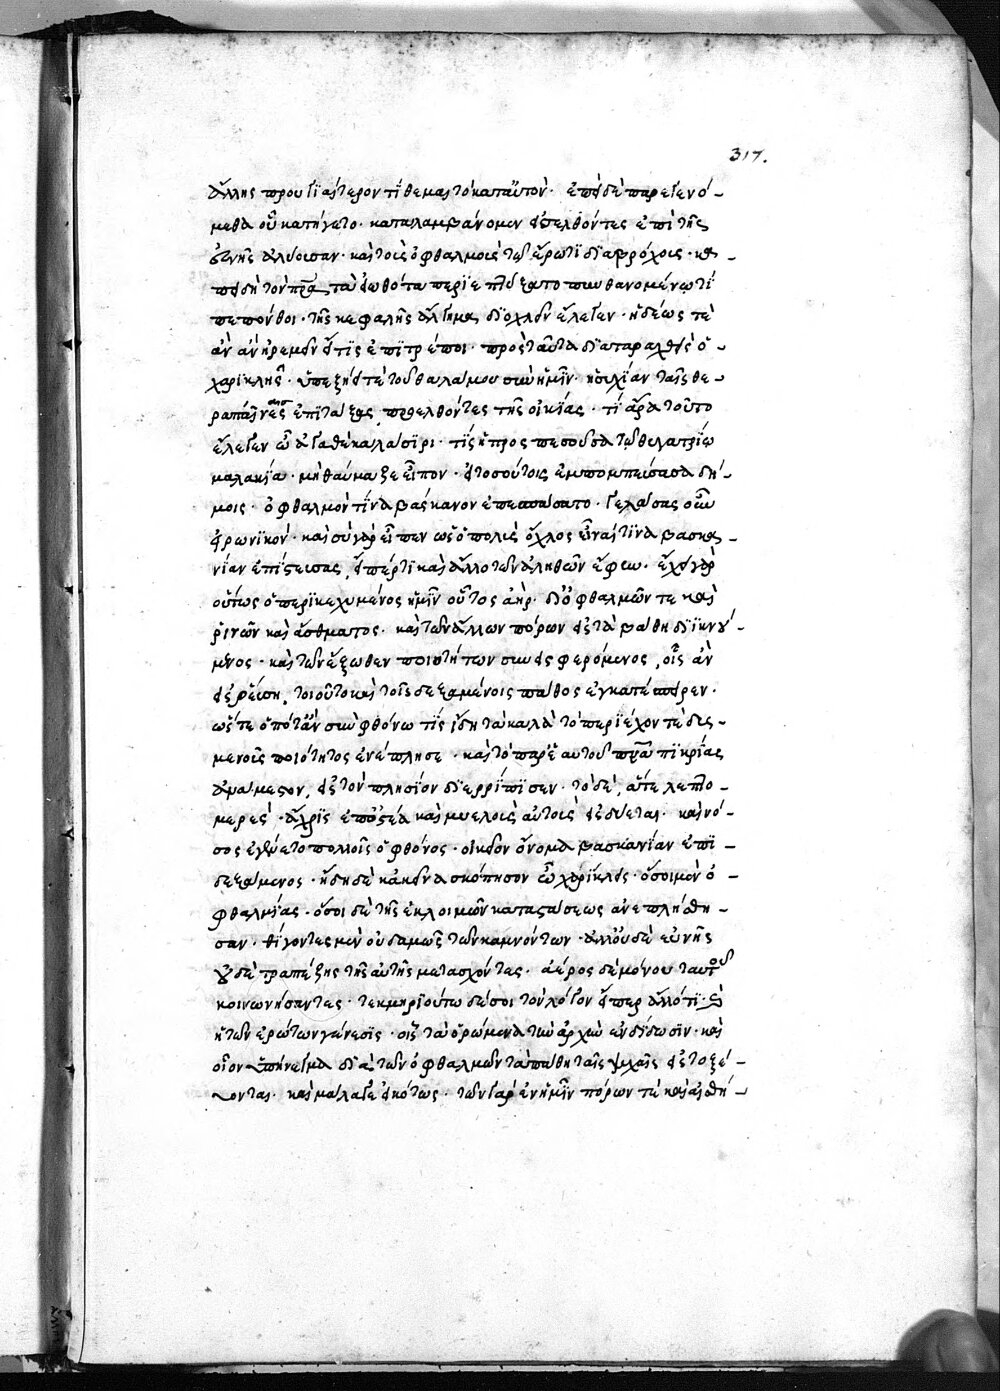 317.
ἄλλης προυργιαίτερον τιθέμας τὸ κατ' αὐτόν. ἐπεὶ δὲ παρεγενό-
μεθα οὗ κατήγετο. καταλαμβάνομεν εἰσελθόντες ἐπὶ τῆς
εὐνῆς ἀλύουσαν. καὶ τοὺς ὀφθαλμοὺς τῷ ἔρωτι διαβρόχους. καὶ
ἐπειδὴ τὸν πρα τὰ εἰωθότα περιεπλέξατο πυνθανομένω τί
πεπόνθοι. τῆς κεφαλῆς ἄλγημα διοχλεῖν ἔλεγεν. ἡδέως τε
ἂν ἀνηρεμεῖν εἴ τις ἐπιτρέποι. πρὸς ταῦτα διαταραχθεὶς ὁ
χαρικλῆς. ὑπεξῄει τε τοῦ θαλάμου σὺν ἡμῖν. ἡσυχίαν ταῖς θε-
ραπαίναις ἐπιτάξας, προελθόντες τῆς οἰκίας. τί ἄρα τοῦτο
ἔλεγεν ὦ ἀγαθὲ καλάσιρι. τίς ἡ προσπεσοῦσα τῷ θυγατρίω
μαλακία. μὴ θαύμαζε εἶπον. εἰ τοσούτοις ἐμπομπεύσασα δή-
μοις. ὀφθαλμόν τινα βάσκανον ἐπεσπάσατο. γελάσας οὖν
εἰρωνικόν. καὶ σὺ γὰρ εἶπεν ὡς ὁ πολὺς ὄχλος εἶναί τινα βασκα-
νίαν ἐπίστευσας, εἴπερ τι καὶ ἄλλο τῶν ἀληθῶν ἔφην. ἔχει γὰρ
οὕτως ὁ περικεχυμένος ἡμῖν οὗτος ἀὴρ. δι' ὀφθαλμῶν τε καὶ
ῥινῶν καὶ ἄσθματος. καὶ τῶν ἄλλων πόρων εἰς τὰ βάθη διικνού-
μενος. καὶ τῶν ἔξωθεν ποιοτήτων συνεισφερόμενος, οἷος ἂν
εἰσρεύσῃ, τοιοῦτο καὶ τοῖς δεξαμένοις πάθος ἐγκατέσπειρεν.
ὥστε ὁπόταν σὺν φθόνω τις ἴδη τὰ καλὰ τὸ περιέχον τε δυσ-
μενοῦς ποιότητος ἐνέπλησε. καὶ τὸ παρ' ἑαυτοῦ πνα πικρίας
ἀνάμεστον, εἰς τὸν πλησίον διερρίπισεν. τὸ δὲ, ἅτε λεπτο-
μερὲς. ἄχρις ἐπ' ὀστέα καὶ μυελοὺς αὐτοὺς εἰσδύεται. καὶ νό-
σος ἐγένετο πολλοῖς ὁ φθόνος. οἰκεῖον ὄνομα βασκανίαν ἐπι-
δεξάμενος. ἤδη δὲ κἀκεῖνα σκόπησον ὦ χαρίκλεις. ὅσοι μὲν ὀ-
φθαλμίας. ὅσοι δὲ τῆς ἐκ λοιμῶν καταστάσεως ἀνεπλήσθη-
σαν. θίγοντες μὲν οὐδαμῶς τῶν καμνόντων. ἀλλ' οὐδὲ εὐνῆς
οὐδὲ τραπέζης τῆς αὐτῆς μετασχόντες. ἀέρος δὲ μόνου ταυτοῦ
κοινωνήσαντες. τεκμηριούτω δέ σοι τὸν λόγον εἴπερ ἄλλό τι. καὶ
ἡ τῶν ἐρώτων γένεσις. οἷς τὰ ὁρώμενα τὴν ἀρχὴν ἐνδίδωσιν. καὶ
οἷον ὑπήνεμα διὰ τῶν ὀφθαλμῶν τὰ πάθη ταῖς ψυχαῖς εἰστοξεύ-
οντας. καὶ μάλα γε εἰκότως. τῶν γὰρ ἐν ἡμῖν πόρων τὲ καὶ αἰσθή-